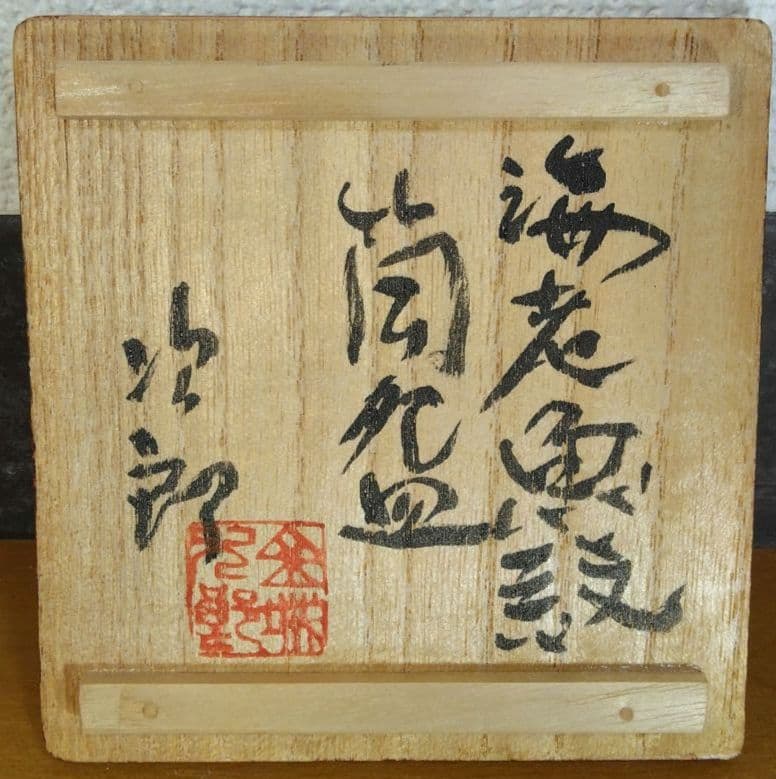 海老魚紋
筒盌
次郎